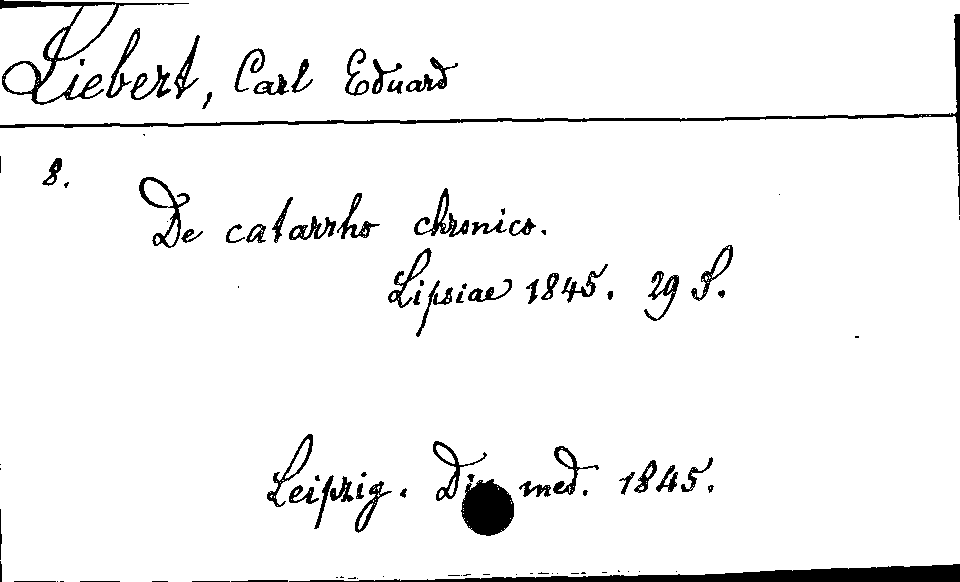 Liebert, Carl Eduard
8.
De catarrho chronico.
Lipsiae 1845. 29 S.
Leipzig. med. 1845.